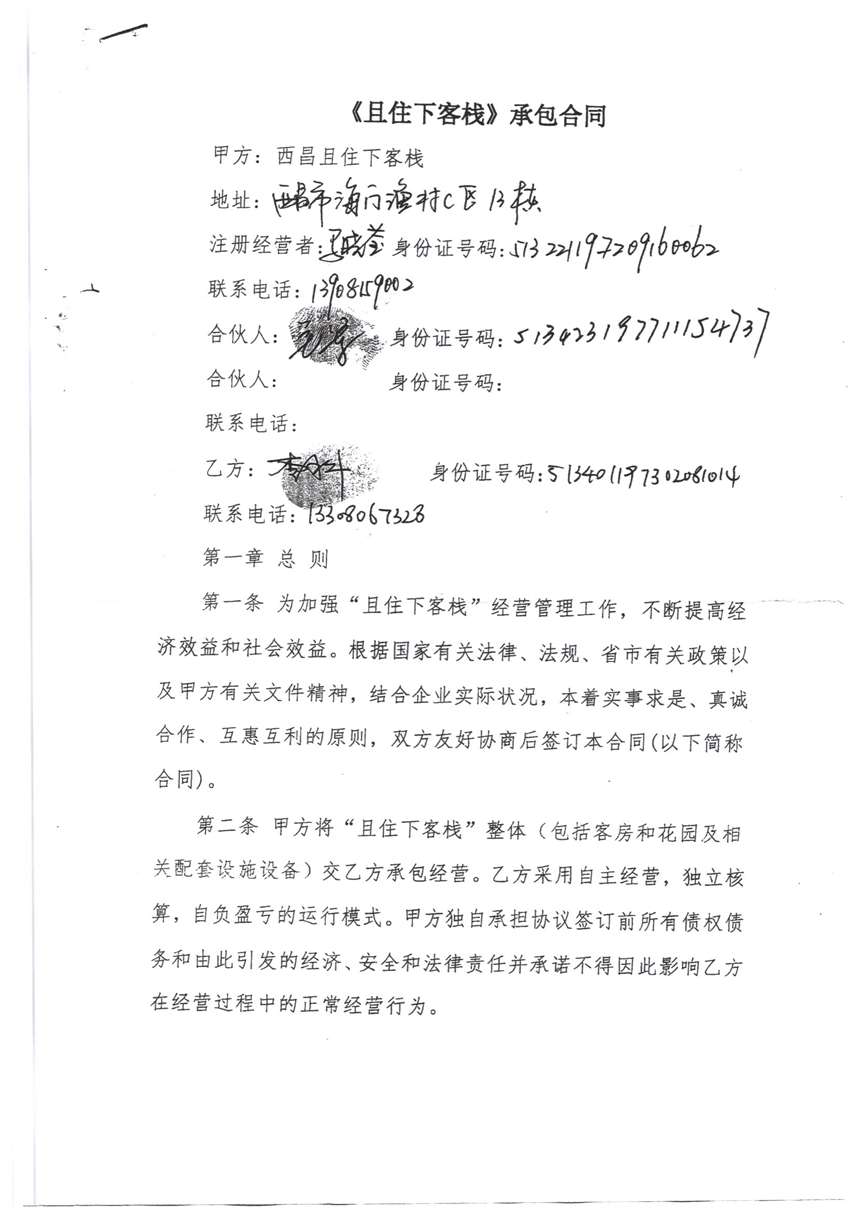 《且住下客栈》承包合同
甲方：西昌且住下客栈
地址：西昌市海门渔村C区13栋
注册经营者：晓莹 身份证号码：513221197209160062
联系电话：13908159002
合伙人： 身份证号码：513423197711154737
合伙人： 身份证号码：
联系电话：
乙方： 身份证号码：513401197302081014
联系电话：13308067328
第一章 总 则
第一条 为加强“且住下客栈”经营管理工作，不断提高经
济效益和社会效益。根据国家有关法律、法规、省市有关政策以
及甲方有关文件精神，结合企业实际状况，本着实事求是、真诚
合作、互惠互利的原则，双方友好协商后签订本合同(以下简称
合同)。
第二条 甲方将“且住下客栈”整体（包括客房和花园及相
关配套设施设备）交乙方承包经营。乙方采用自主经营，独立核
算，自负盈亏的运行模式。甲方独自承担协议签订前所有债权债
务和由此引发的经济、安全和法律责任并承诺不得因此影响乙方
在经营过程中的正常经营行为。